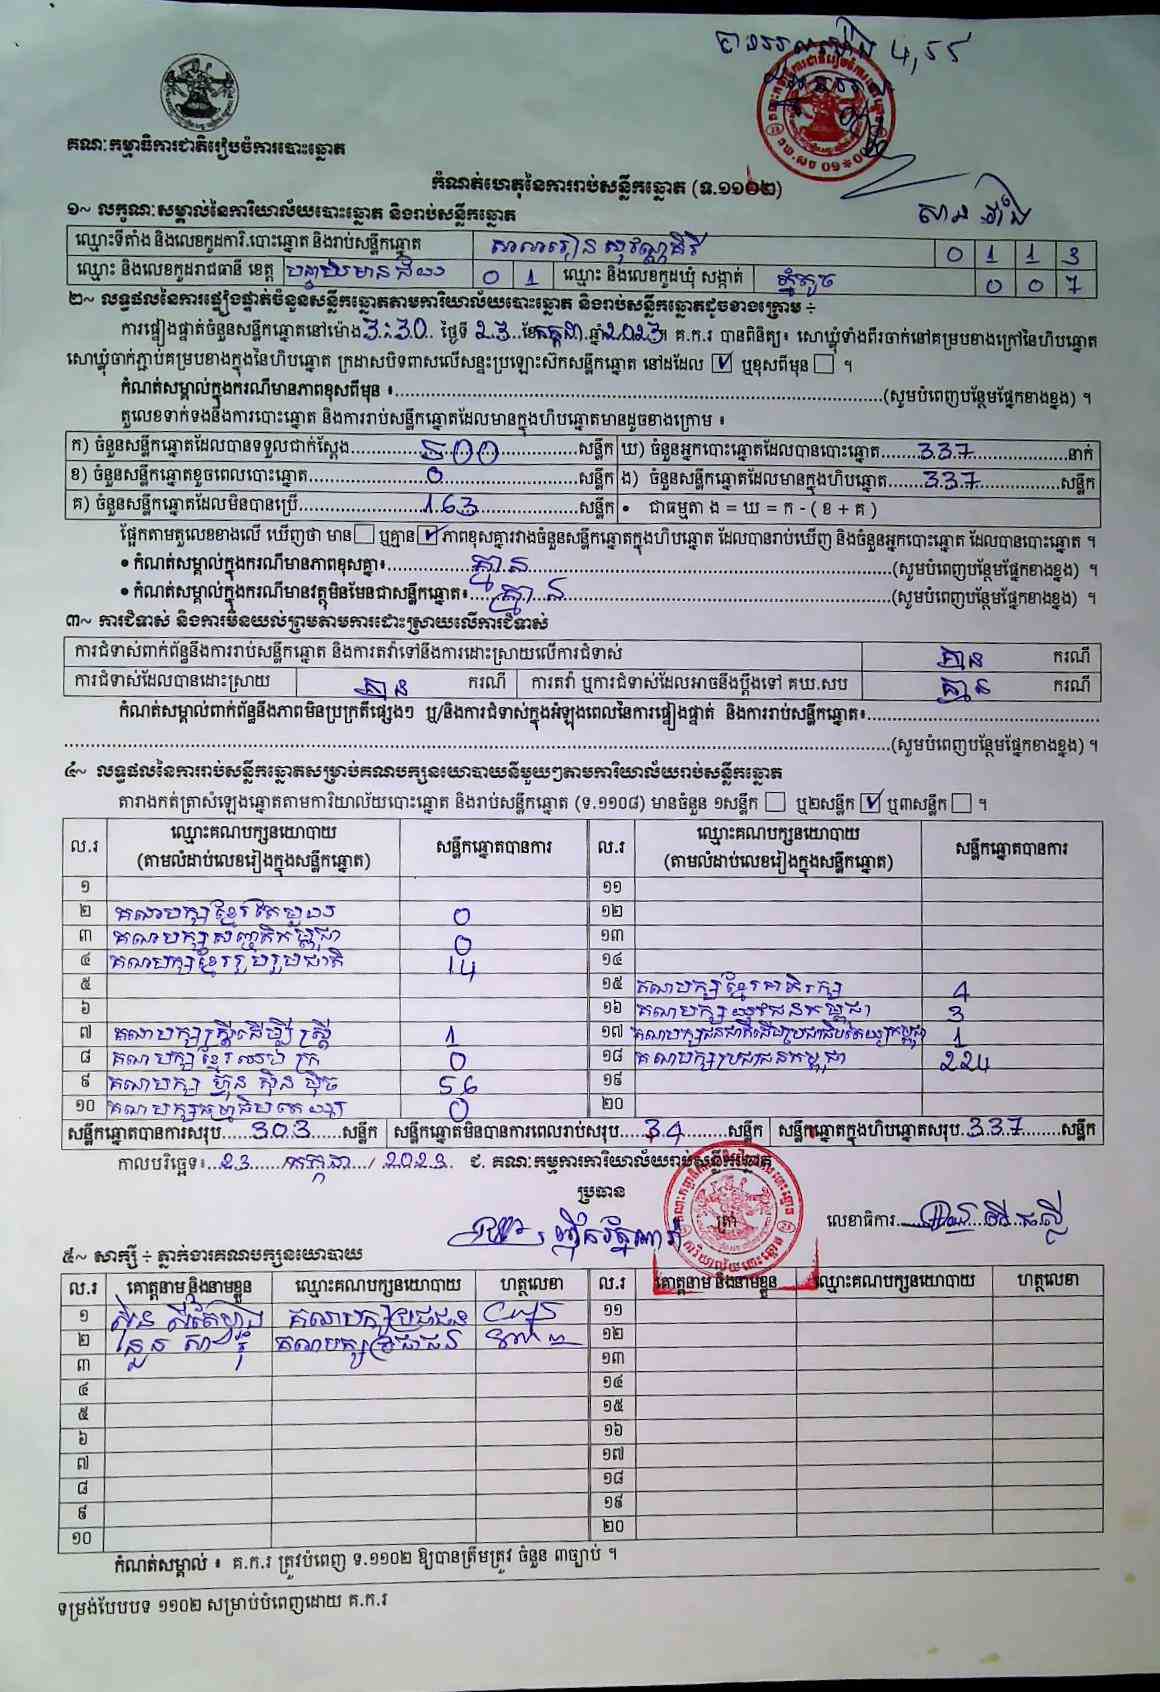 គណៈកម្មាធិការជាតិរៀបចំការបោះឆ្នោត
កំណត់ហេតុនៃការរាប់សន្លឹកឆ្នោត (ទ.១១០២)
១~ លក្ខណៈសម្គាល់នៃការិយាល័យបោះឆ្នោត និងរាប់សន្លឹកឆ្នោត
ឈ្មោះទីតាំង និងលេខកូដការិ.បោះឆ្នោត និងរាប់សន្លឹកឆ្នោត សាលារៀន 0 1 1 3
ឈ្មោះ និងលេខកូដរាជធានី ខេត្ត បន្ទាយមានជ័យ 0 1 ឈ្មោះ និងលេខកូដឃុំ សង្កាត់ ភ្នំតូច 0 0 7
២~ លទ្ធផលនៃការផ្ទៀងផ្ទាត់ចំនួនសន្លឹកឆ្នោតតាមការិយាល័យបោះឆ្នោត និងរាប់សន្លឹកឆ្នោតដូចខាងក្រោម ÷
ការផ្ទៀងផ្ទាត់ចំនួនសន្លឹកឆ្នោតនៅម៉ោង 3:30 ថ្ងៃទី 23 ខែ កក្កដា ឆ្នាំ 2023 ។ គ.ក.រ បានពិនិត្យ៖ សោឃ្លុំទាំងពីរចាក់នៅគម្របខាងក្រៅនៃហិបឆ្នោត
សោឃ្លុំចាក់ភ្ជាប់គម្របខាងក្នុងនៃហិបឆ្នោត ក្រដាសបិទពាសលើសន្ទះប្រឡោះស៊កសន្លឹកឆ្នោត នៅដដែល ☑ ឬខុសពីមុន ☐ ។
កំណត់សម្គាល់ក្នុងករណីមានភាពខុសពីមុន ៖ (សូមបំពេញបន្ថែមផ្នែកខាងខ្នង) ។
តួលេខទាក់ទងនឹងការបោះឆ្នោត និងការរាប់សន្លឹកឆ្នោតដែលមានក្នុងហិបឆ្នោតមានដូចខាងក្រោម ៖
ក) ចំនួនសន្លឹកឆ្នោតដែលបានទទួលជាក់ស្តែង 500 សន្លឹក ឃ) ចំនួនអ្នកបោះឆ្នោតដែលបានបោះឆ្នោត 337 នាក់
ខ) ចំនួនសន្លឹកឆ្នោតខូចពេលបោះឆ្នោត 0 សន្លឹក ង) ចំនួនសន្លឹកឆ្នោតដែលមានក្នុងហិបឆ្នោត 337 សន្លឹក
គ) ចំនួនសន្លឹកឆ្នោតដែលមិនបានប្រើ 163 សន្លឹក • ជាធម្មតា ង = ឃ = ក - ( ខ + គ )
ផ្អែកតាមតួលេខខាងលើ ឃើញថា មាន ☐ ឬគ្មាន ☑ ភាពខុសគ្នារវាងចំនួនសន្លឹកឆ្នោតក្នុងហិបឆ្នោត ដែលបានរាប់ឃើញ និងចំនួនអ្នកបោះឆ្នោត ដែលបានបោះឆ្នោត ។
• កំណត់សម្គាល់ក្នុងករណីមានភាពខុសគ្នា៖ គ្មាន (សូមបំពេញបន្ថែមផ្នែកខាងខ្នង) ។
• កំណត់សម្គាល់ក្នុងករណីមានវត្ថុមិនមែនជាសន្លឹកឆ្នោត៖ គ្មាន (សូមបំពេញបន្ថែមផ្នែកខាងខ្នង) ។
៣~ ការជំទាស់ និងការមិនយល់ព្រមតាមការដោះស្រាយលើការជំទាស់
ការជំទាស់ពាក់ព័ន្ធនឹងការរាប់សន្លឹកឆ្នោត និងការតវ៉ាទៅនឹងការដោះស្រាយលើការជំទាស់ គ្មាន ករណី
ការជំទាស់ដែលបានដោះស្រាយ គ្មាន ករណី ការតវ៉ា ឬការជំទាស់ដែលអាចនឹងប្តឹងទៅ គឃ.សប គ្មាន ករណី
កំណត់សម្គាល់ពាក់ព័ន្ធនឹងភាពមិនប្រក្រតីផ្សេងៗ ឬ/និងការជំទាស់ក្នុងអំឡុងពេលនៃការផ្ទៀងផ្ទាត់ និងការរាប់សន្លឹកឆ្នោត៖
(សូមបំពេញបន្ថែមផ្នែកខាងខ្នង) ។
៤~ លទ្ធផលនៃការរាប់សន្លឹកឆ្នោតសម្រាប់គណបក្សនយោបាយនីមួយៗតាមការិយាល័យរាប់សន្លឹកឆ្នោត
តារាងកត់ត្រាសំឡេងឆ្នោតតាមការិយាល័យបោះឆ្នោត និងរាប់សន្លឹកឆ្នោត (ទ.១១០៨) មានចំនួន ១សន្លឹក ☐ ឬ២សន្លឹក ☑ ឬ៣សន្លឹក ☐ ។
ល.រ ឈ្មោះគណបក្សនយោបាយ (តាមលំដាប់លេខរៀងក្នុងសន្លឹកឆ្នោត) សន្លឹកឆ្នោតបានការ ល.រ ឈ្មោះគណបក្សនយោបាយ (តាមលំដាប់លេខរៀងក្នុងសន្លឹកឆ្នោត) សន្លឹកឆ្នោតបានការ
១ ១១
២ គណបក្សខ្មែរតែមួយ 0 ១២
៣ គណបក្សសញ្ជាតិកម្ពុជា 0 ១៣
៤ គណបក្សខ្មែររួបរួមជាតិ 14 ១៤
៥ ១៥ គណបក្សខ្មែរអភិរក្ស 4
៦ ១៦ គណបក្សយុវជនកម្ពុជា 3
៧ គណបក្សស្ត្រីដើម្បីស្ត្រី 1 ១៧ គណបក្សជនជាតិដើមប្រជាធិបតេយ្យកម្ពុជា 1
៨ គណបក្សខ្មែរឈប់ក្រ 0 ១៨ គណបក្សប្រជាជនកម្ពុជា 224
៩ គណបក្ស ហ៊្វុន ស៊ិន ប៉ិច 56 ១៩
១០ គណបក្សធម្មាធិបតេយ្យ 0 ២០
សន្លឹកឆ្នោតបានការសរុប 303 សន្លឹក សន្លឹកឆ្នោតមិនបានការពេលរាប់សរុប 34 សន្លឹក សន្លឹកឆ្នោតក្នុងហិបឆ្នោតសរុប 337 សន្លឹក
កាលបរិច្ឆេទ៖ 23 / កក្កដា / 2023 ជ. គណៈកម្មការការិយាល័យរាប់សន្លឹកឆ្នោត
ប្រធាន
លេខាធិការ
៥~ សាក្សី ÷ ភ្នាក់ងារគណបក្សនយោបាយ
ល.រ គោត្តនាម និងនាមខ្លួន ឈ្មោះគណបក្សនយោបាយ ហត្ថលេខា ល.រ គោត្តនាម និងនាមខ្លួន ឈ្មោះគណបក្សនយោបាយ ហត្ថលេខា
១ គណបក្សប្រជាជន ១១
២ គណបក្សប្រជាជន ១២
៣ ១៣
៤ ១៤
៥ ១៥
៦ ១៦
៧ ១៧
៨ ១៨
៩ ១៩
១០ ២០
កំណត់សម្គាល់ ៖ គ.ក.រ ត្រូវបំពេញ ទ.១១០២ ឱ្យបានត្រឹមត្រូវ ចំនួន ៣ច្បាប់ ។
ទម្រង់បែបបទ ១១០២ សម្រាប់បំពេញដោយ គ.ក.រ